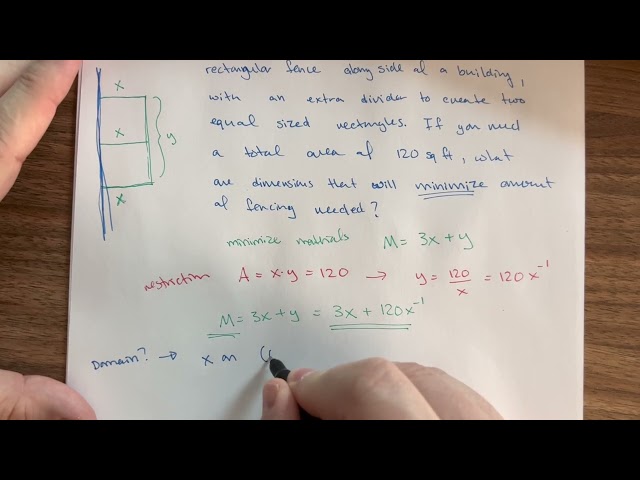 rectangular fence along side of a building,
with an extra divider to create two
equal sized rectangles. If you need
a total area of 120 sq ft, what
are dimensions that will minimize amount
of fencing needed?
x
x
y
x
minimize materials M = 3x + y
restriction A = x·y = 120 → y = 120/x = 120x⁻¹
M = 3x + y = 3x + 120x⁻¹
Domain? → x on (